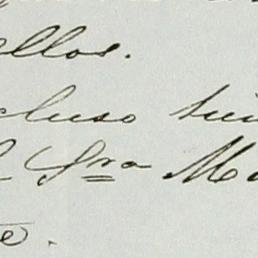 ellos.
cluso
Sra M
te.